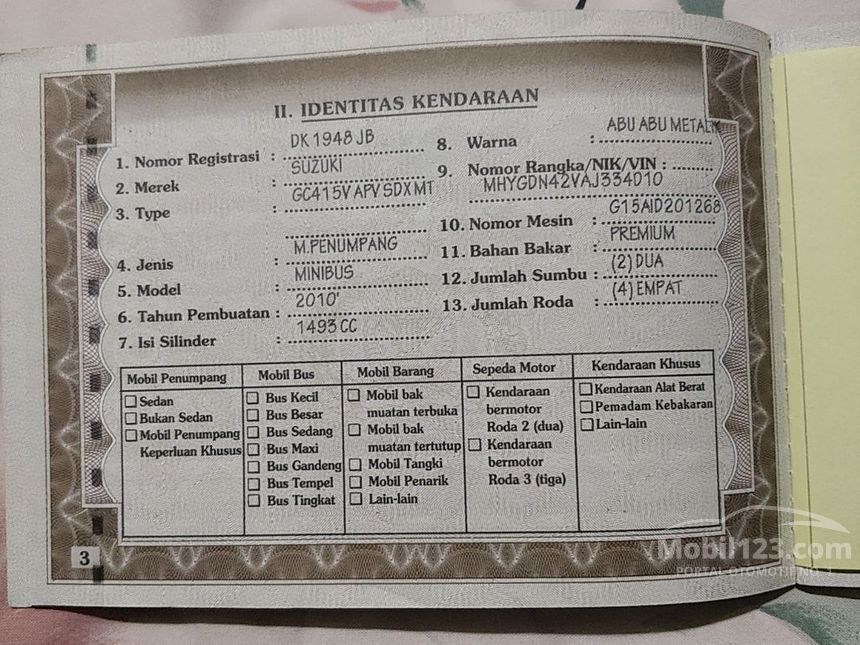 II. IDENTITAS KENDARAAN
1. Nomor Registrasi : DK 1948 JB
2. Merek : SUZUKI
3. Type : GC415V APV SDX MT
4. Jenis : M.PENUMPANG
5. Model : MINIBUS
6. Tahun Pembuatan : 2010'
7. Isi Silinder : 1493 CC
8. Warna : ABU ABU METALIK
9. Nomor Rangka/NIK/VIN :
MHYGDN42VAJ334010
10. Nomor Mesin : G15AID201268
11. Bahan Bakar : PREMIUM
12. Jumlah Sumbu : (2) DUA
13. Jumlah Roda : (4) EMPAT
Mobil Penumpang
Sedan
Bukan Sedan
Mobil Penumpang
Keperluan Khusus
Mobil Bus
Bus Kecil
Bus Besar
Bus Sedang
Bus Maxi
Bus Gandeng
Bus Tempel
Bus Tingkat
Mobil Barang
Mobil bak
muatan terbuka
Mobil bak
muatan tertutup
Mobil Tangki
Mobil Penarik
Lain-lain
Sepeda Motor
Kendaraan
bermotor
Roda 2 (dua)
Kendaraan
bermotor
Roda 3 (tiga)
Kendaraan Khusus
Kendaraan Alat Berat
Pemadam Kebakaran
Lain-lain
3
Mobil123.com
PORTAL OTOMOTIF NO. 1